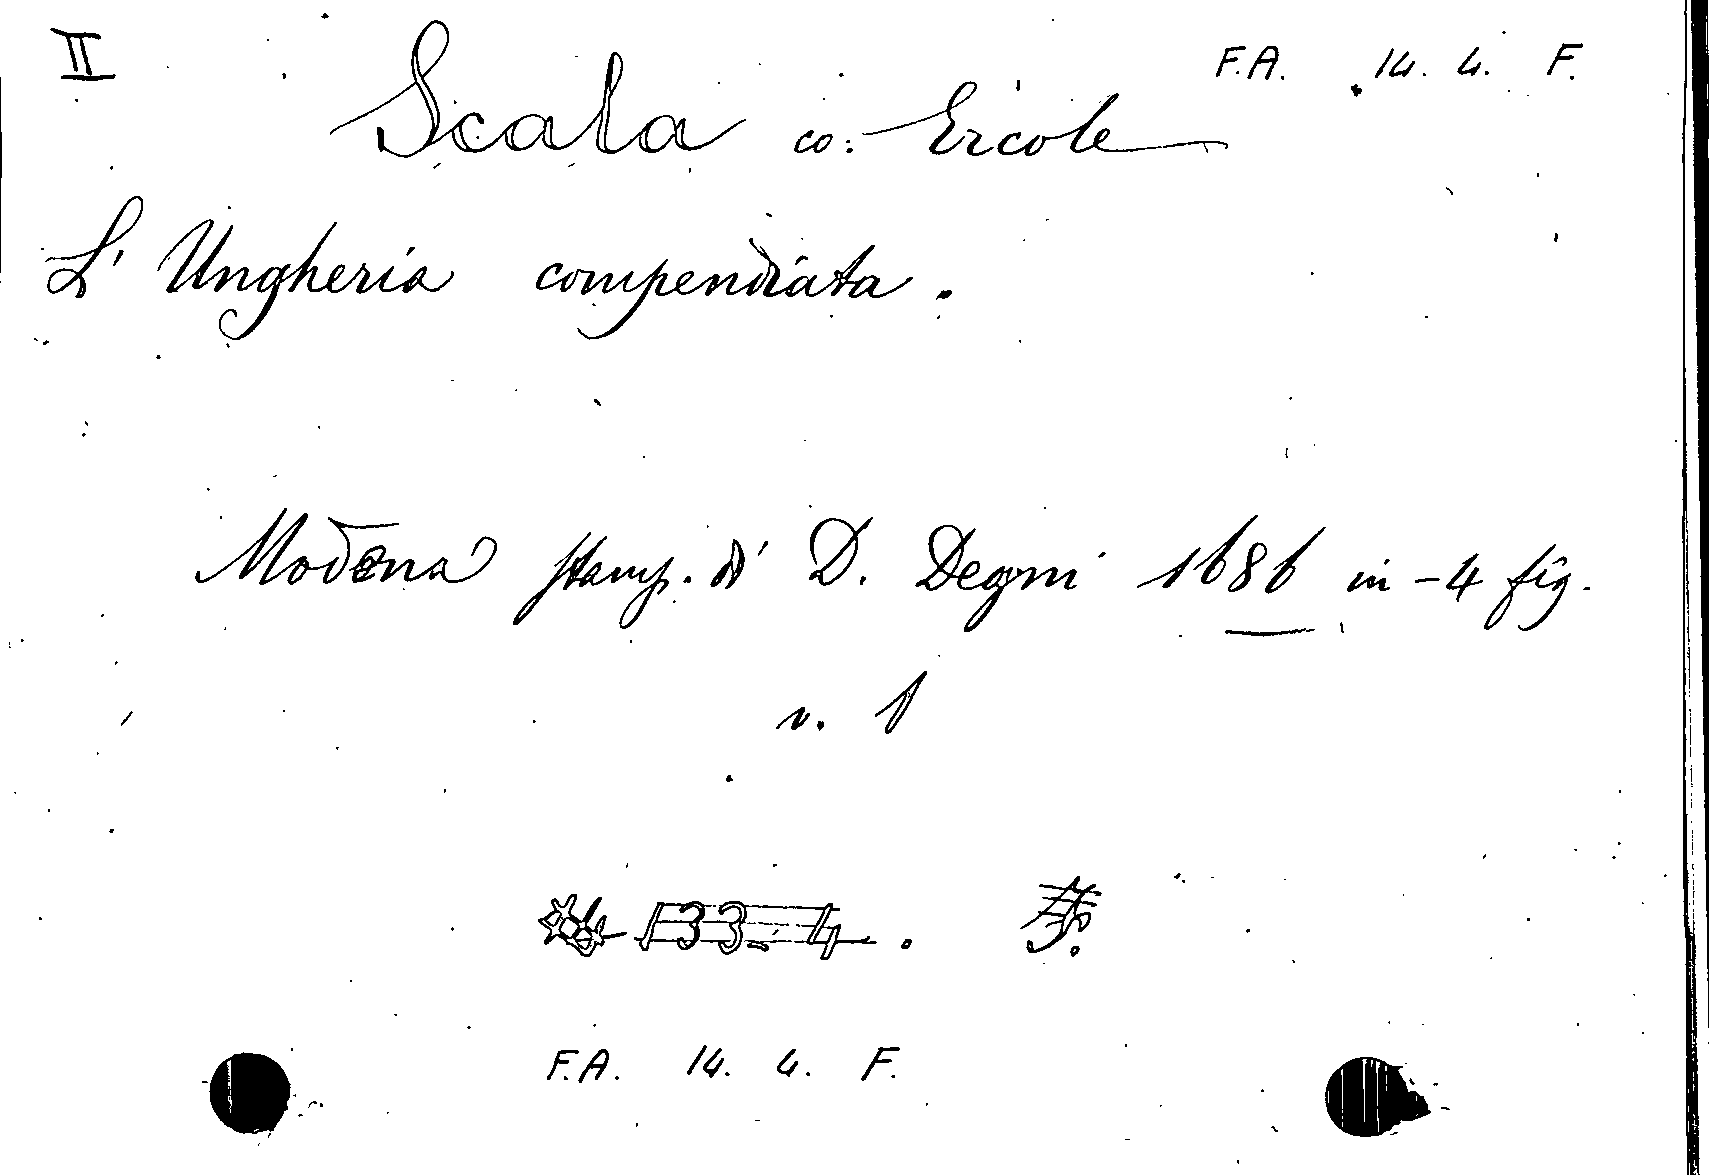 II
F.A. 14. 4. F.
Scala co: Ercole
L' Ungheria compendiata.
Modena Stamp. di D. Degni 1686 in-4 fig.
v. 1
133-4.
F.A. 14. 4. F.